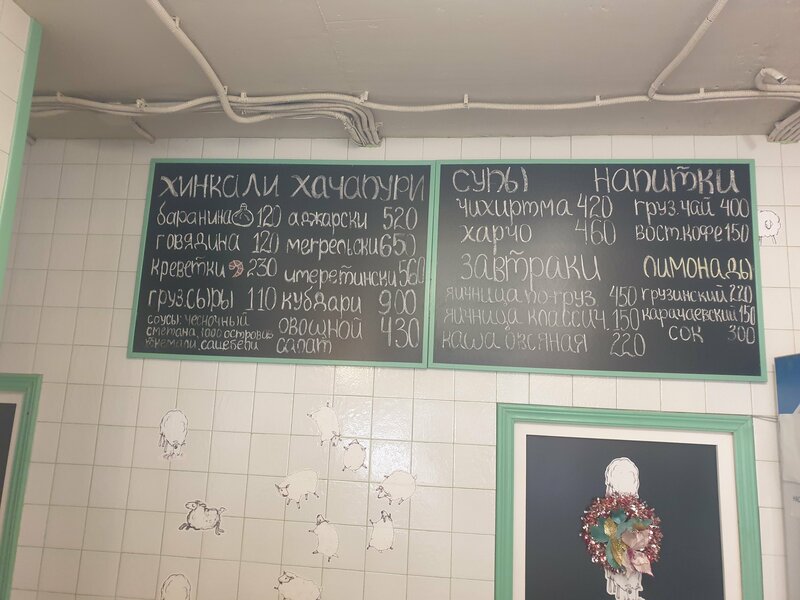 ХИНКАЛИ
баранина 120
говядина 120
креветки 230
груз.сыры 110
соусы: чесночный
сметана, 1000 островов
ткемали, сацебели
ХАЧАПУРИ
аджарски 520
мегрельски 650
имеретински 560
кубдари 900
овощной 430
салат
СУПЫ
чихиртма 420
харчо 460
ЗАВТРАКИ
яичница по-груз. 450
яичница классич. 150
каша овсяная 220
НАПИТКИ
груз.чай 400
вост.кофе 150
ЛИМОНАДЫ
грузинский 220
карачаевский 150
сок 300